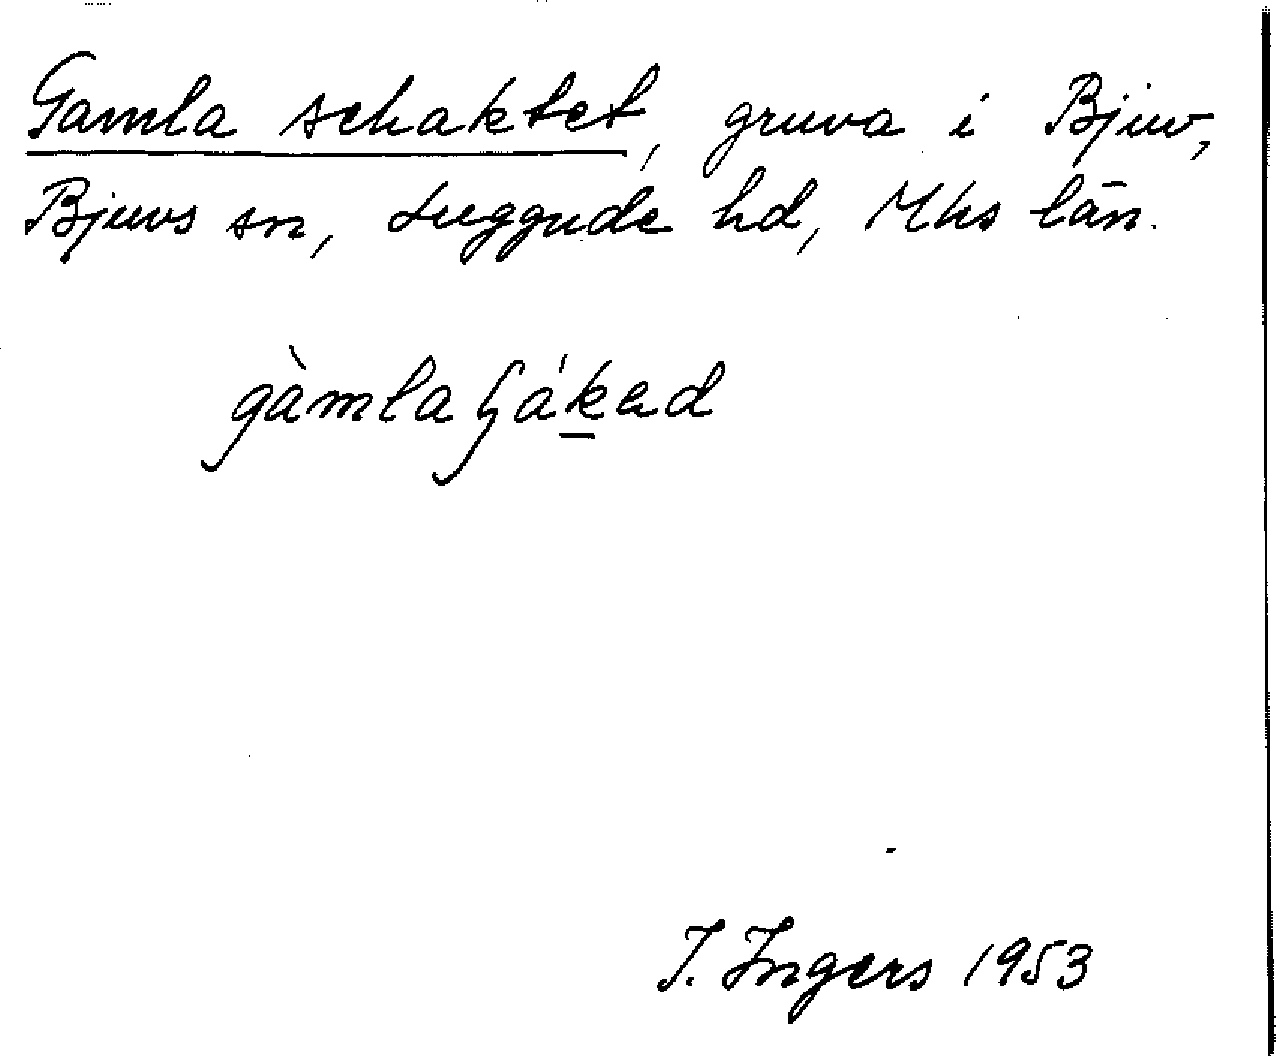 Gamla schaktet, gruva i Bjuv,
Bjuvs sn, Luggude hd, Mhs län.
gàmla ɧákad
I. Ingers 1953